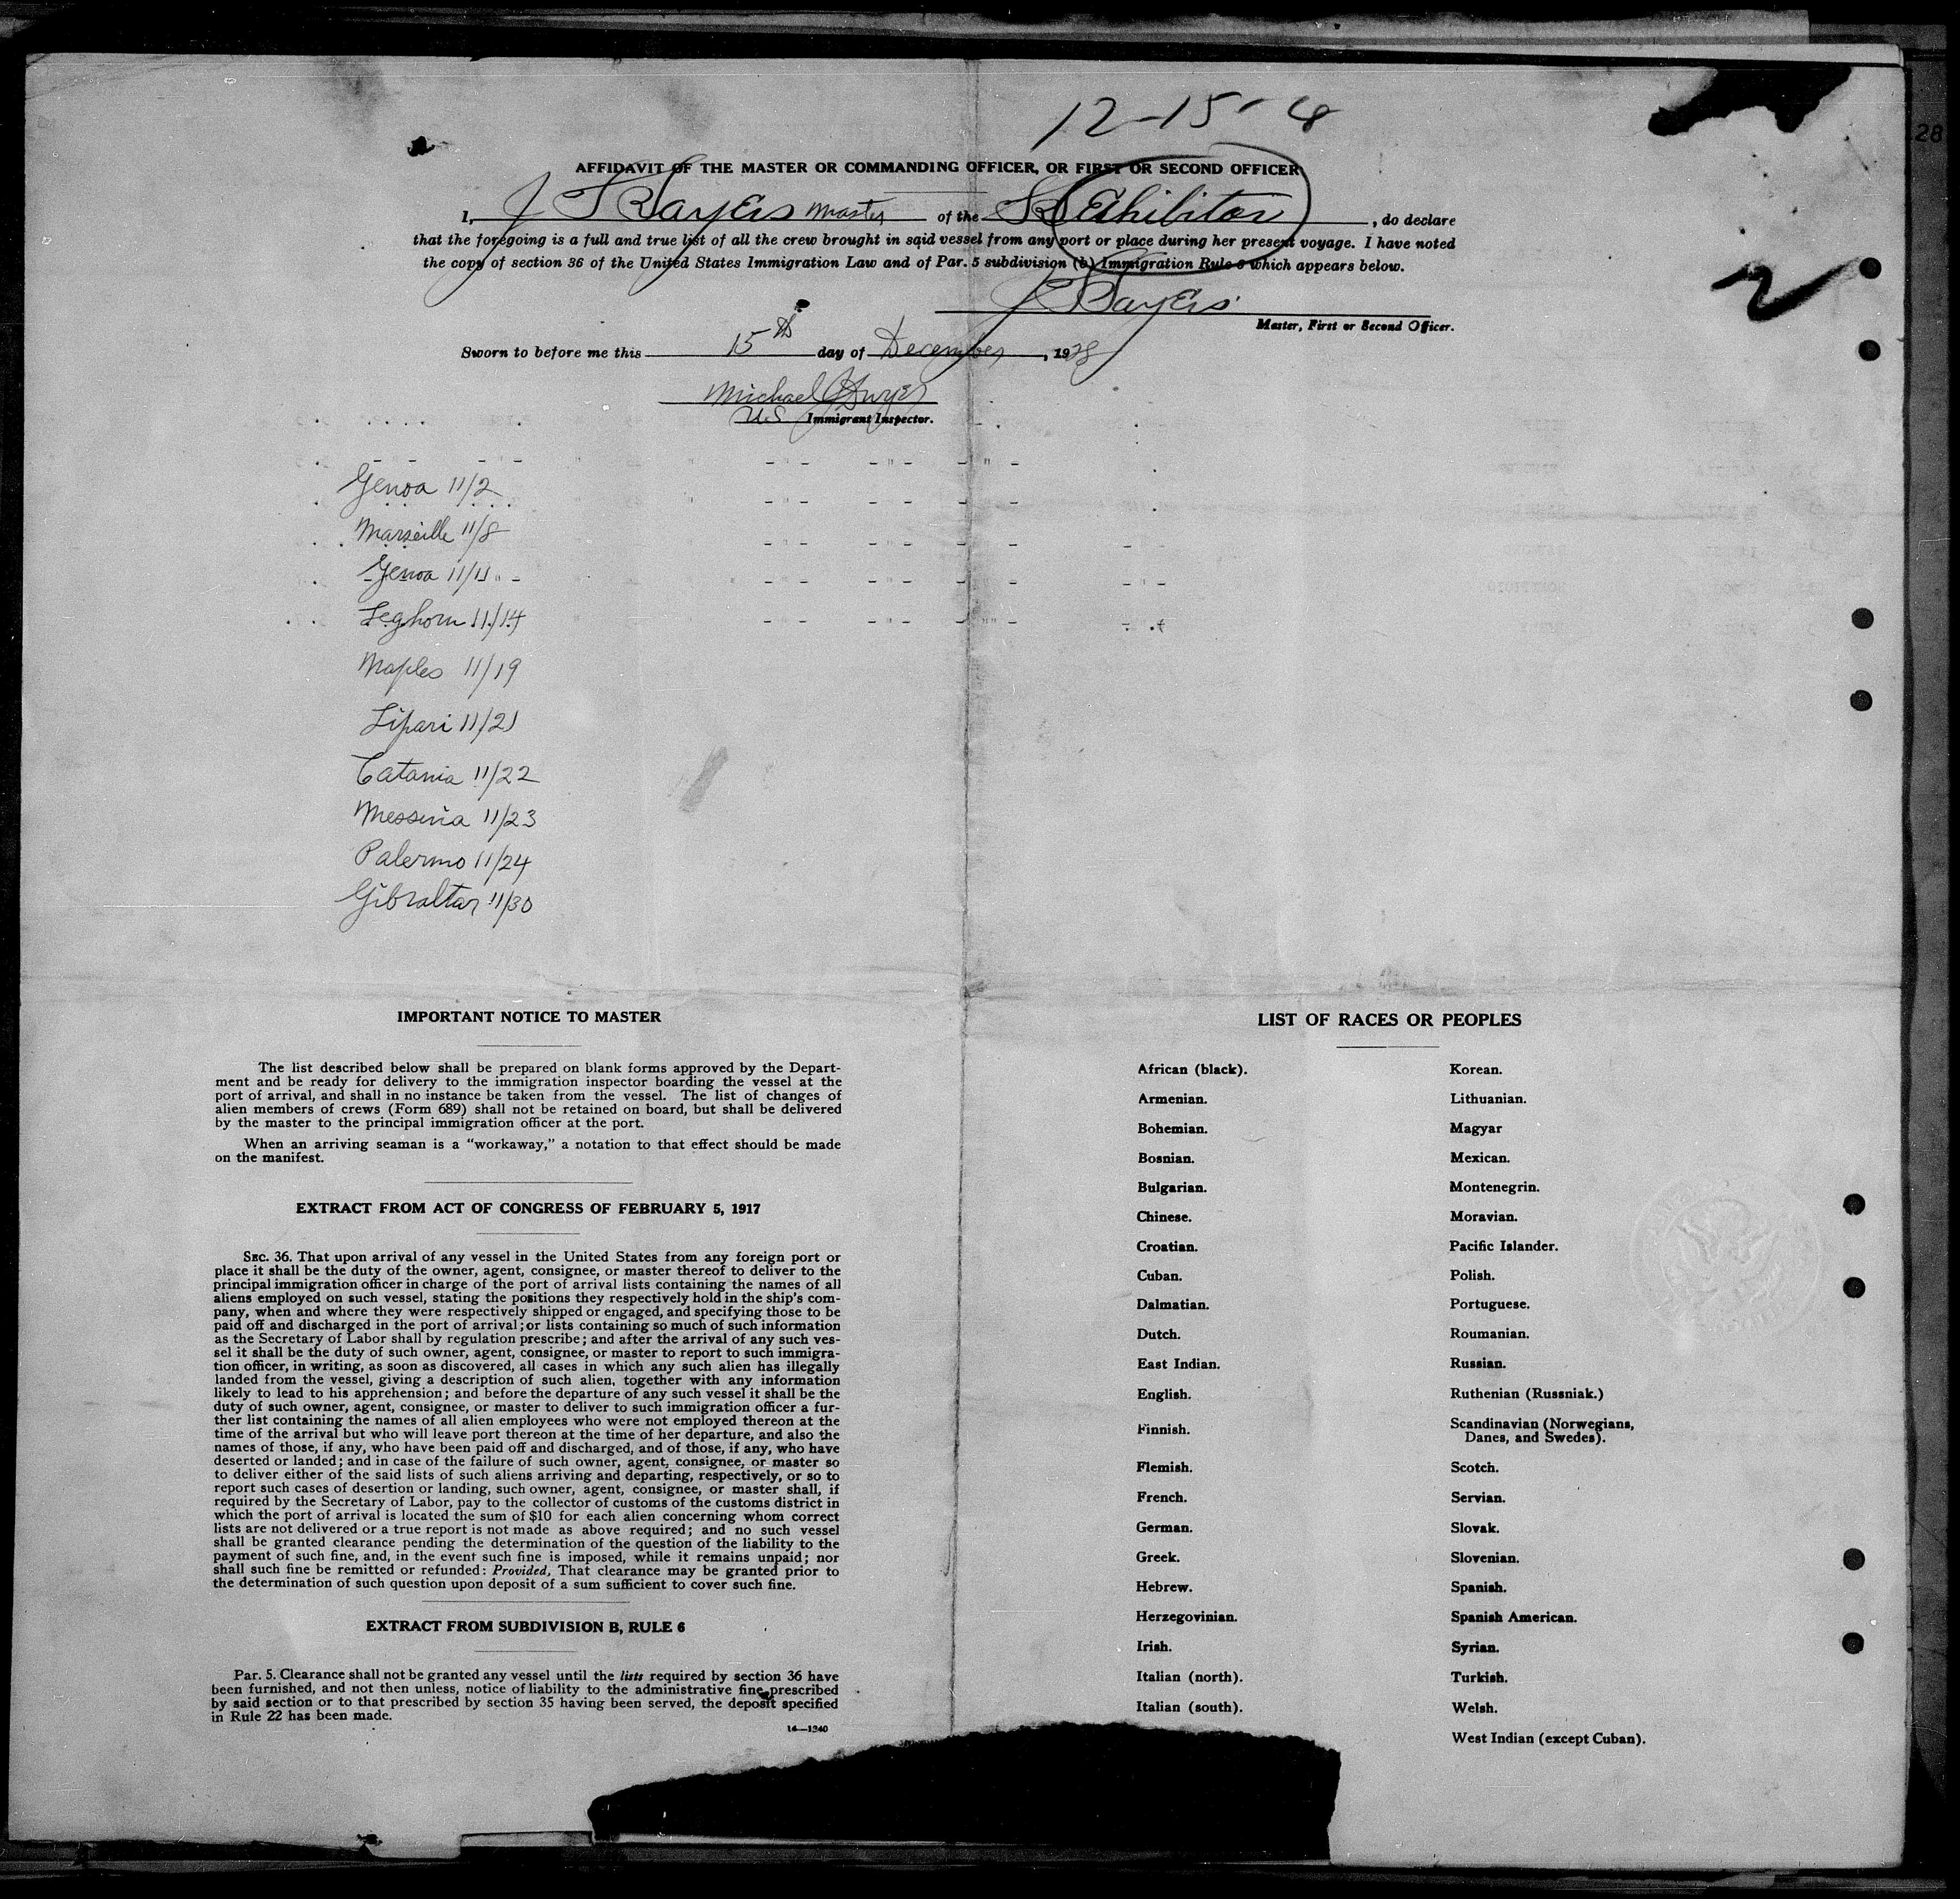 12-15-
28
AFFIDAVIT OF THE MASTER OR COMMANDING OFFICER, OR FIRST OR SECOND OFFICER
I, J T Sayers Master of the SS Exhibitor, do declare
that the foregoing is a full and true list of all the crew brought in said vessel from any port or place during her present voyage. I have noted
the copy of section 36 of the United States Immigration Law and of Par. 5 subdivision (b) Immigration Rule 6 which appears below.
J T Sayers
Master, First or Second Officer.
2
Sworn to before me this 15th day of December, 1928
Michael Dwyer
U.S Immigrant Inspector.
Genoa 11/2
Marseille 11/8
Genoa 11/11
Leghorn 11/14
Naples 11/19
Lipari 11/21
Catania 11/22
Messina 11/23
Palermo 11/24
Gibraltar 11/30
IMPORTANT NOTICE TO MASTER
The list described below shall be prepared on blank forms approved by the Depart-
ment and be ready for delivery to the immigration inspector boarding the vessel at the
port of arrival, and shall in no instance be taken from the vessel. The list of changes of
alien members of crews (Form 689) shall not be retained on board, but shall be delivered
by the master to the principal immigration officer at the port.
When an arriving seaman is a "workaway," a notation to that effect should be made
on the manifest.
EXTRACT FROM ACT OF CONGRESS OF FEBRUARY 5, 1917
SEC. 36. That upon arrival of any vessel in the United States from any foreign port or
place it shall be the duty of the owner, agent, consignee, or master thereof to deliver to the
principal immigration officer in charge of the port of arrival lists containing the names of all
aliens employed on such vessel, stating the positions they respectively hold in the ship's com-
pany, when and where they were respectively shipped or engaged, and specifying those to be
paid off and discharged in the port of arrival; or lists containing so much of such information
as the Secretary of Labor shall by regulation prescribe; and after the arrival of any such ves-
sel it shall be the duty of such owner, agent, consignee, or master to report to such immigra-
tion officer, in writing, as soon as discovered, all cases in which any such alien has illegally
landed from the vessel, giving a description of such alien, together with any information
likely to lead to his apprehension; and before the departure of any such vessel it shall be the
duty of such owner, agent, consignee, or master to deliver to such immigration officer a fur-
ther list containing the names of all alien employees who were not employed thereon at the
time of the arrival but who will leave port thereon at the time of her departure, and also the
names of those, if any, who have been paid off and discharged, and of those, if any, who have
deserted or landed; and in case of the failure of such owner, agent, consignee, or master so
to deliver either of the said lists of such aliens arriving and departing, respectively, or so to
report such cases of desertion or landing, such owner, agent, consignee, or master shall, if
required by the Secretary of Labor, pay to the collector of customs of the customs district in
which the port of arrival is located the sum of $10 for each alien concerning whom correct
lists are not delivered or a true report is not made as above required; and no such vessel
shall be granted clearance pending the determination of the question of the liability to the
payment of such fine, and, in the event such fine is imposed, while it remains unpaid; nor
shall such fine be remitted or refunded: Provided, That clearance may be granted prior to
the determination of such question upon deposit of a sum sufficient to cover such fine.
EXTRACT FROM SUBDIVISION B, RULE 6
Par. 5. Clearance shall not be granted any vessel until the lists required by section 36 have
been furnished, and not then unless, notice of liability to the administrative fine prescribed
by said section or to that prescribed by section 35 having been served, the deposit specified
in Rule 22 has been made.
14—1240
LIST OF RACES OR PEOPLES
African (black).
Armenian.
Bohemian.
Bosnian.
Bulgarian.
Chinese.
Croatian.
Cuban.
Dalmatian.
Dutch.
East Indian.
English.
Finnish.
Flemish.
French.
German.
Greek.
Hebrew.
Herzegovinian.
Irish.
Italian (north).
Italian (south).
Korean.
Lithuanian.
Magyar
Mexican.
Montenegrin.
Moravian.
Pacific Islander.
Polish.
Portuguese.
Roumanian.
Russian.
Ruthenian (Russniak.)
Scandinavian (Norwegians,
Danes, and Swedes).
Scotch.
Servian.
Slovak.
Slovenian.
Spanish.
Spanish American.
Syrian.
Turkish.
Welsh.
West Indian (except Cuban).